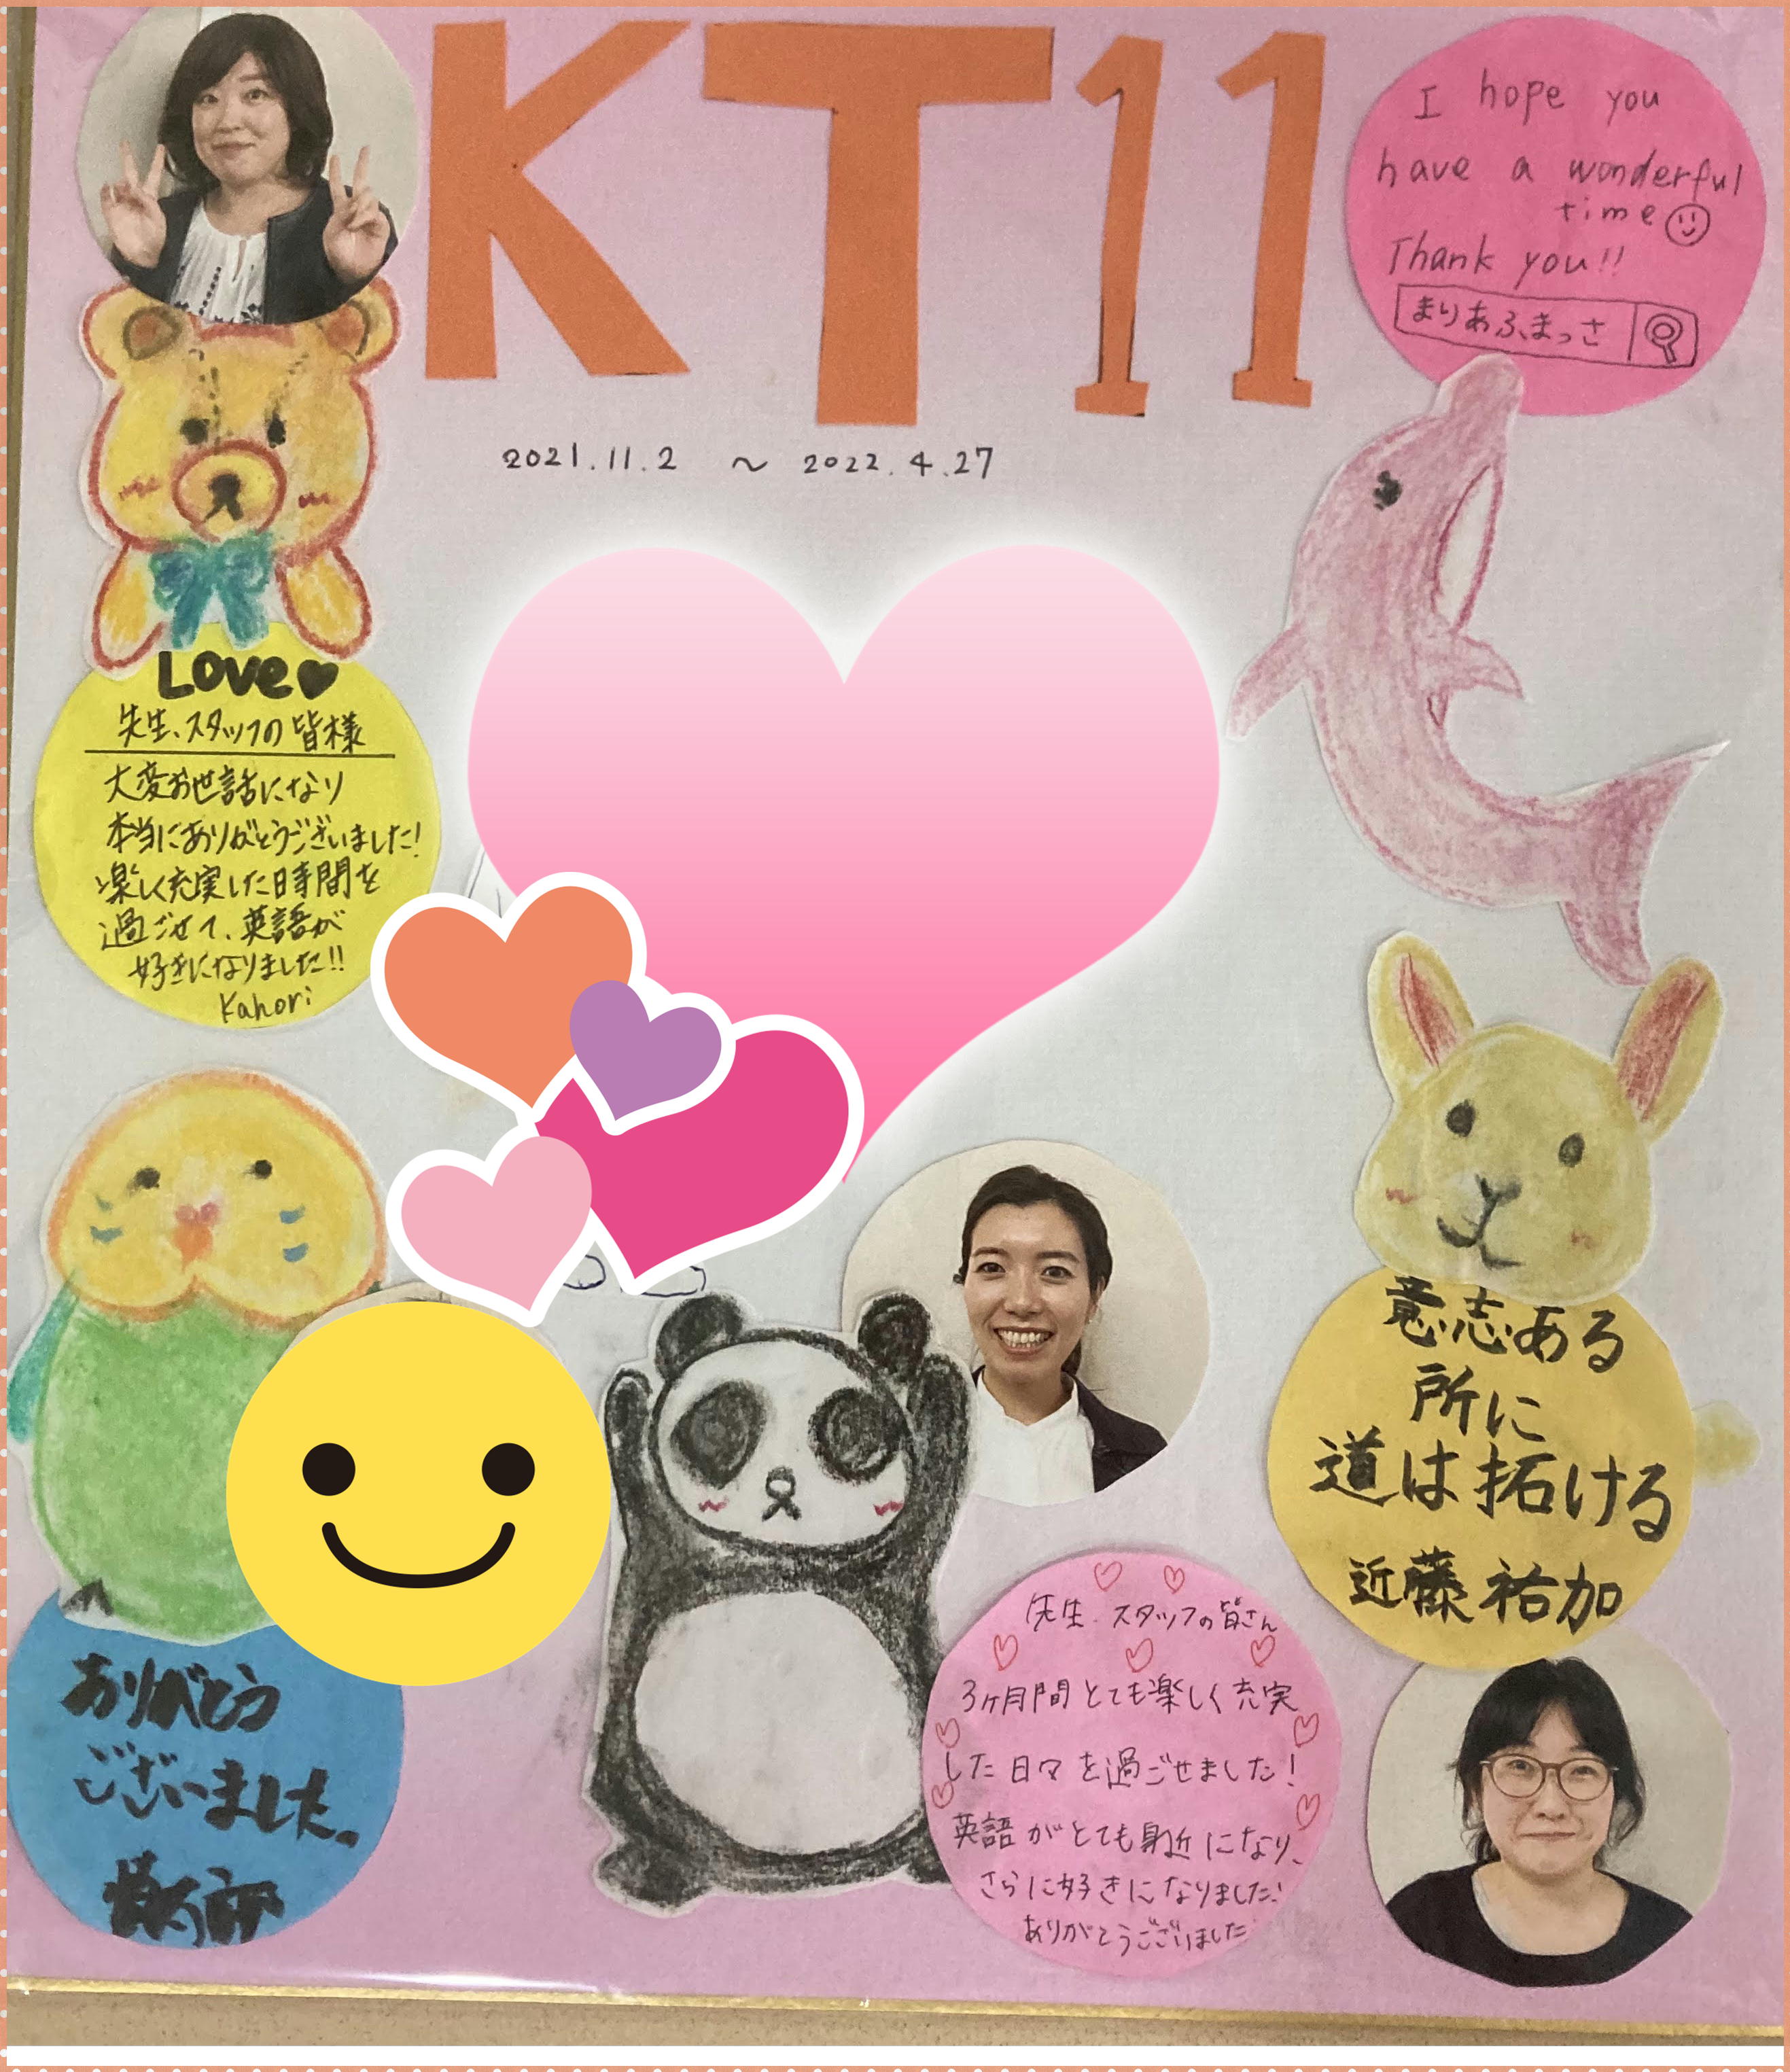 KT11
I hope you
have a wonderful
time
Thank you!!
まりあふぁまっさ
2021.11.2 ～ 2022.4.27
Love♥
先生、スタッフの皆様
大変お世話になり
本当にありがとうございました!
楽しく充実した時間を
過ごせて、英語が
好きになりました!!
Kahori
意志ある
所に
道は拓ける
近藤 祐加
先生、スタッフの皆さん
3ヶ月間とても楽しく充実
した日々を過ごせました!
英語がとても身近になり、
さらに好きになりました!
ありがとうございました
ありがとう
ございました。